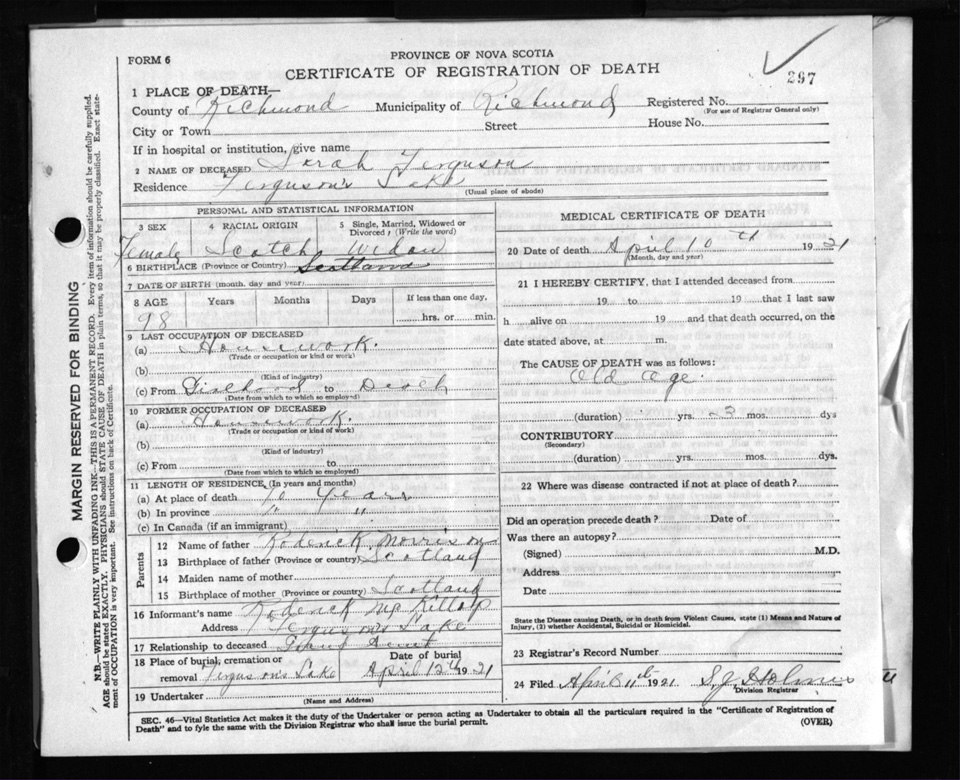 FORM 6
PROVINCE OF NOVA SCOTIA
CERTIFICATE OF REGISTRATION OF DEATH
297
1 PLACE OF DEATH—
County of Richmond Municipality of Richmond Registered No.
(For use of Registrar General only)
City or Town Street House No.
If in hospital or institution, give name
2 NAME OF DECEASED Sarah Ferguson
Residence Ferguson's Lake
(Usual place of abode)
PERSONAL AND STATISTICAL INFORMATION
3 SEX 4 RACIAL ORIGIN 5 Single, Married, Widowed or Divorced? (Write the word)
Female Scotch Widow
6 BIRTHPLACE (Province or Country) Scotland
7 DATE OF BIRTH (month, day and year)
8 AGE Years Months Days If less than one day,
98 hrs. or min.
9 LAST OCCUPATION OF DECEASED
(a) Housework.
(Trade or occupation or kind or work)
(b)
(Kind of industry)
(c) From to Death
(Date from which to which so employed)
10 FORMER OCCUPATION OF DECEASED
(a) Housework.
(Trade or occupation or kind of work)
(b)
(Kind of industry)
(c) From to
(Date from which to which so employed)
11 LENGTH OF RESIDENCE (In years and months)
(a) At place of death 70 Years
(b) In province " "
(c) In Canada (if an immigrant)
Parents
12 Name of father Roderick Morrison
13 Birthplace of father (Province or country) Scotland
14 Maiden name of mother
15 Birthplace of mother (Province or country) Scotland
16 Informant's name Roderick McKillop
Address Ferguson's Lake
17 Relationship to deceased
18 Place of burial, cremation or removal Ferguson's Lake Date of burial April 12th 1921
19 Undertaker
(Name and Address)
MEDICAL CERTIFICATE OF DEATH
20 Date of death April 10th 1921
(Month, day and year)
21 I HEREBY CERTIFY, that I attended deceased from
19 to 19 that I last saw
h alive on 19 and that death occurred, on the
date stated above, at m.
The CAUSE OF DEATH was as follows:
Old age.
(duration) yrs. 3 mos. dys
CONTRIBUTORY
(Secondary)
(duration) yrs. mos. dys.
22 Where was disease contracted if not at place of death?
Did an operation precede death? Date of
Was there an autopsy?
(Signed) M.D.
Address
Date
State the Disease causing Death, or in death from Violent Causes, state (1) Means and Nature of
Injury, (2) whether Accidental, Suicidal or Homicidal.
23 Registrar's Record Number
24 Filed April 11th 1921 S.J. Holmes
Division Registrar
SEC. 46—Vital Statistics Act makes it the duty of the Undertaker or person acting as Undertaker to obtain all the particulars required in the "Certificate of Registration of
Death" and to fyle the same with the Division Registrar who shall issue the burial permit. (OVER)
MARGIN RESERVED FOR BINDING
N.B.—WRITE PLAINLY WITH UNFADING INK—THIS IS A PERMANENT RECORD. Every item of information should be carefully supplied.
AGE should be stated EXACTLY. PHYSICIANS should STATE CAUSE OF DEATH in plain terms, so that it may be properly classified. Exact state-
ment of OCCUPATION is very important. See instructions on back of Certificate.